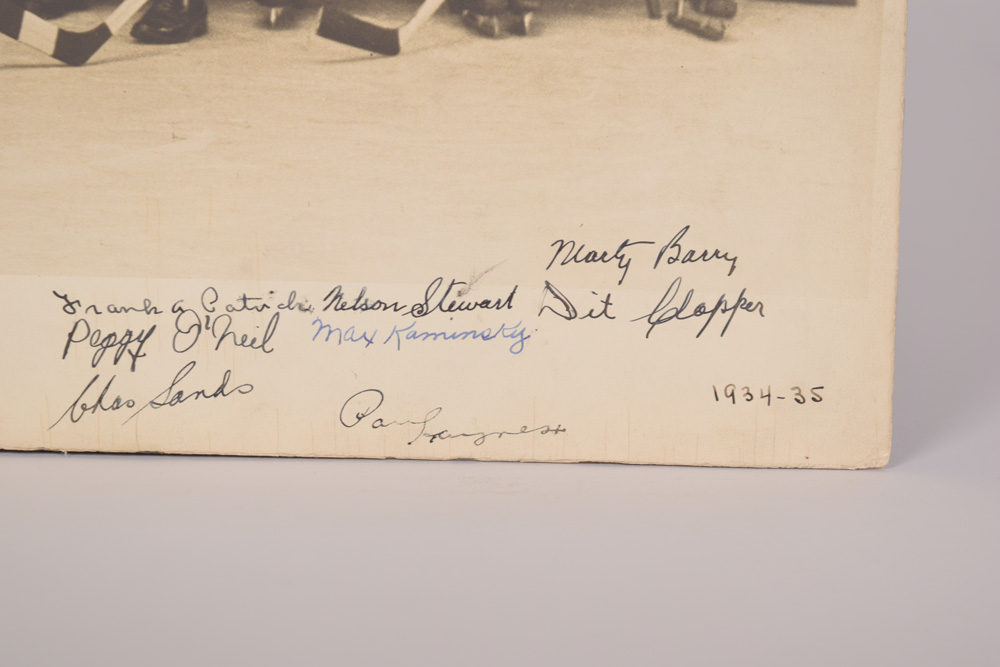 Marty Barry
Frank A Patrick Nelson Stewart Dit Clapper
Peggy O'Neil Max Kaminsky
Chas Sands 1934-35
Paul